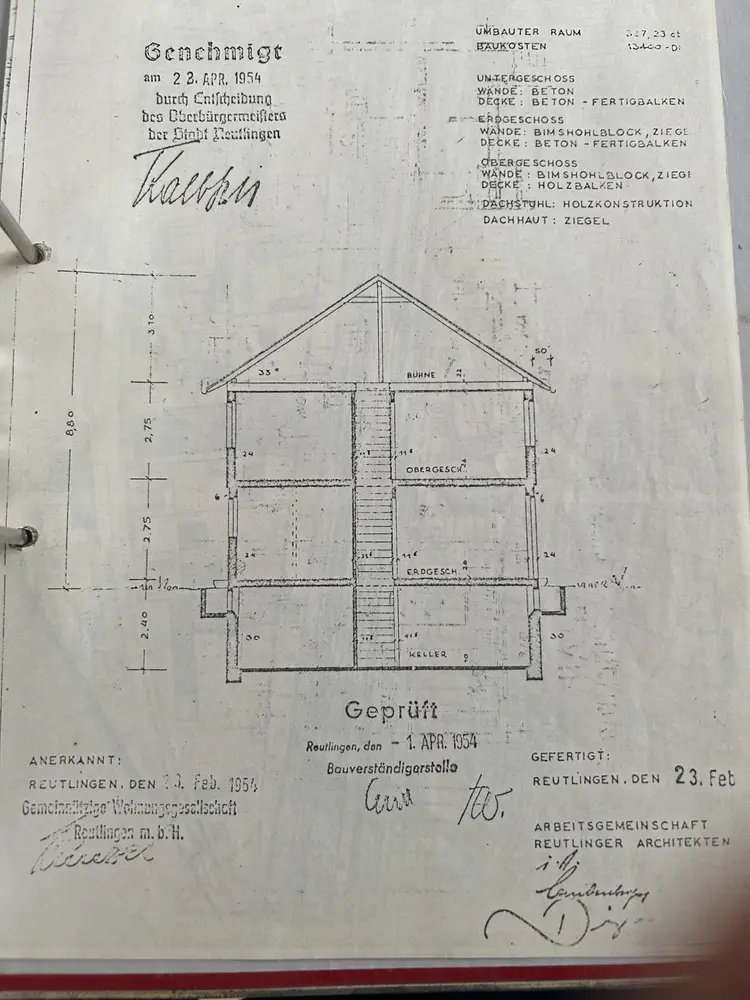 Genehmigt
am 23. APR. 1954
durch Entscheidung
des Oberbürgermeisters
der Stadt Reutlingen
UMBAUTER RAUM
BAUKOSTEN
UNTERGESCHOSS
WÄNDE: BETON
DECKE: BETON - FERTIGBALKEN
ERDGESCHOSS
WÄNDE: BIMSHOHLBLOCK, ZIEGE
DECKE: BETON - FERTIGBALKEN
OBERGESCHOSS
WÄNDE: BIMSHOHLBLOCK, ZIEGE
DECKE: HOLZBALKEN
DACHSTUHL: HOLZKONSTRUKTION
DACHHAUT: ZIEGEL
3,10
50
33°
BÜHNE
22
8,80
2,75
24
11⁵
24
OBERGESCH.
6
6
2,75
24
11⁵
24
ERDGESCH.
2,40
30
30
KELLER
Geprüft
Reutlingen, den - 1. APR. 1954
Bauverständigerstelle
ANERKANNT:
REUTLINGEN, DEN Feb. 1954
Gemeinnützige Wohnungsgesellschaft
Reutlingen m. b. H.
GEFERTIGT:
REUTLINGEN, DEN 23. Feb
ARBEITSGEMEINSCHAFT
REUTLINGER ARCHITEKTEN
i. A.